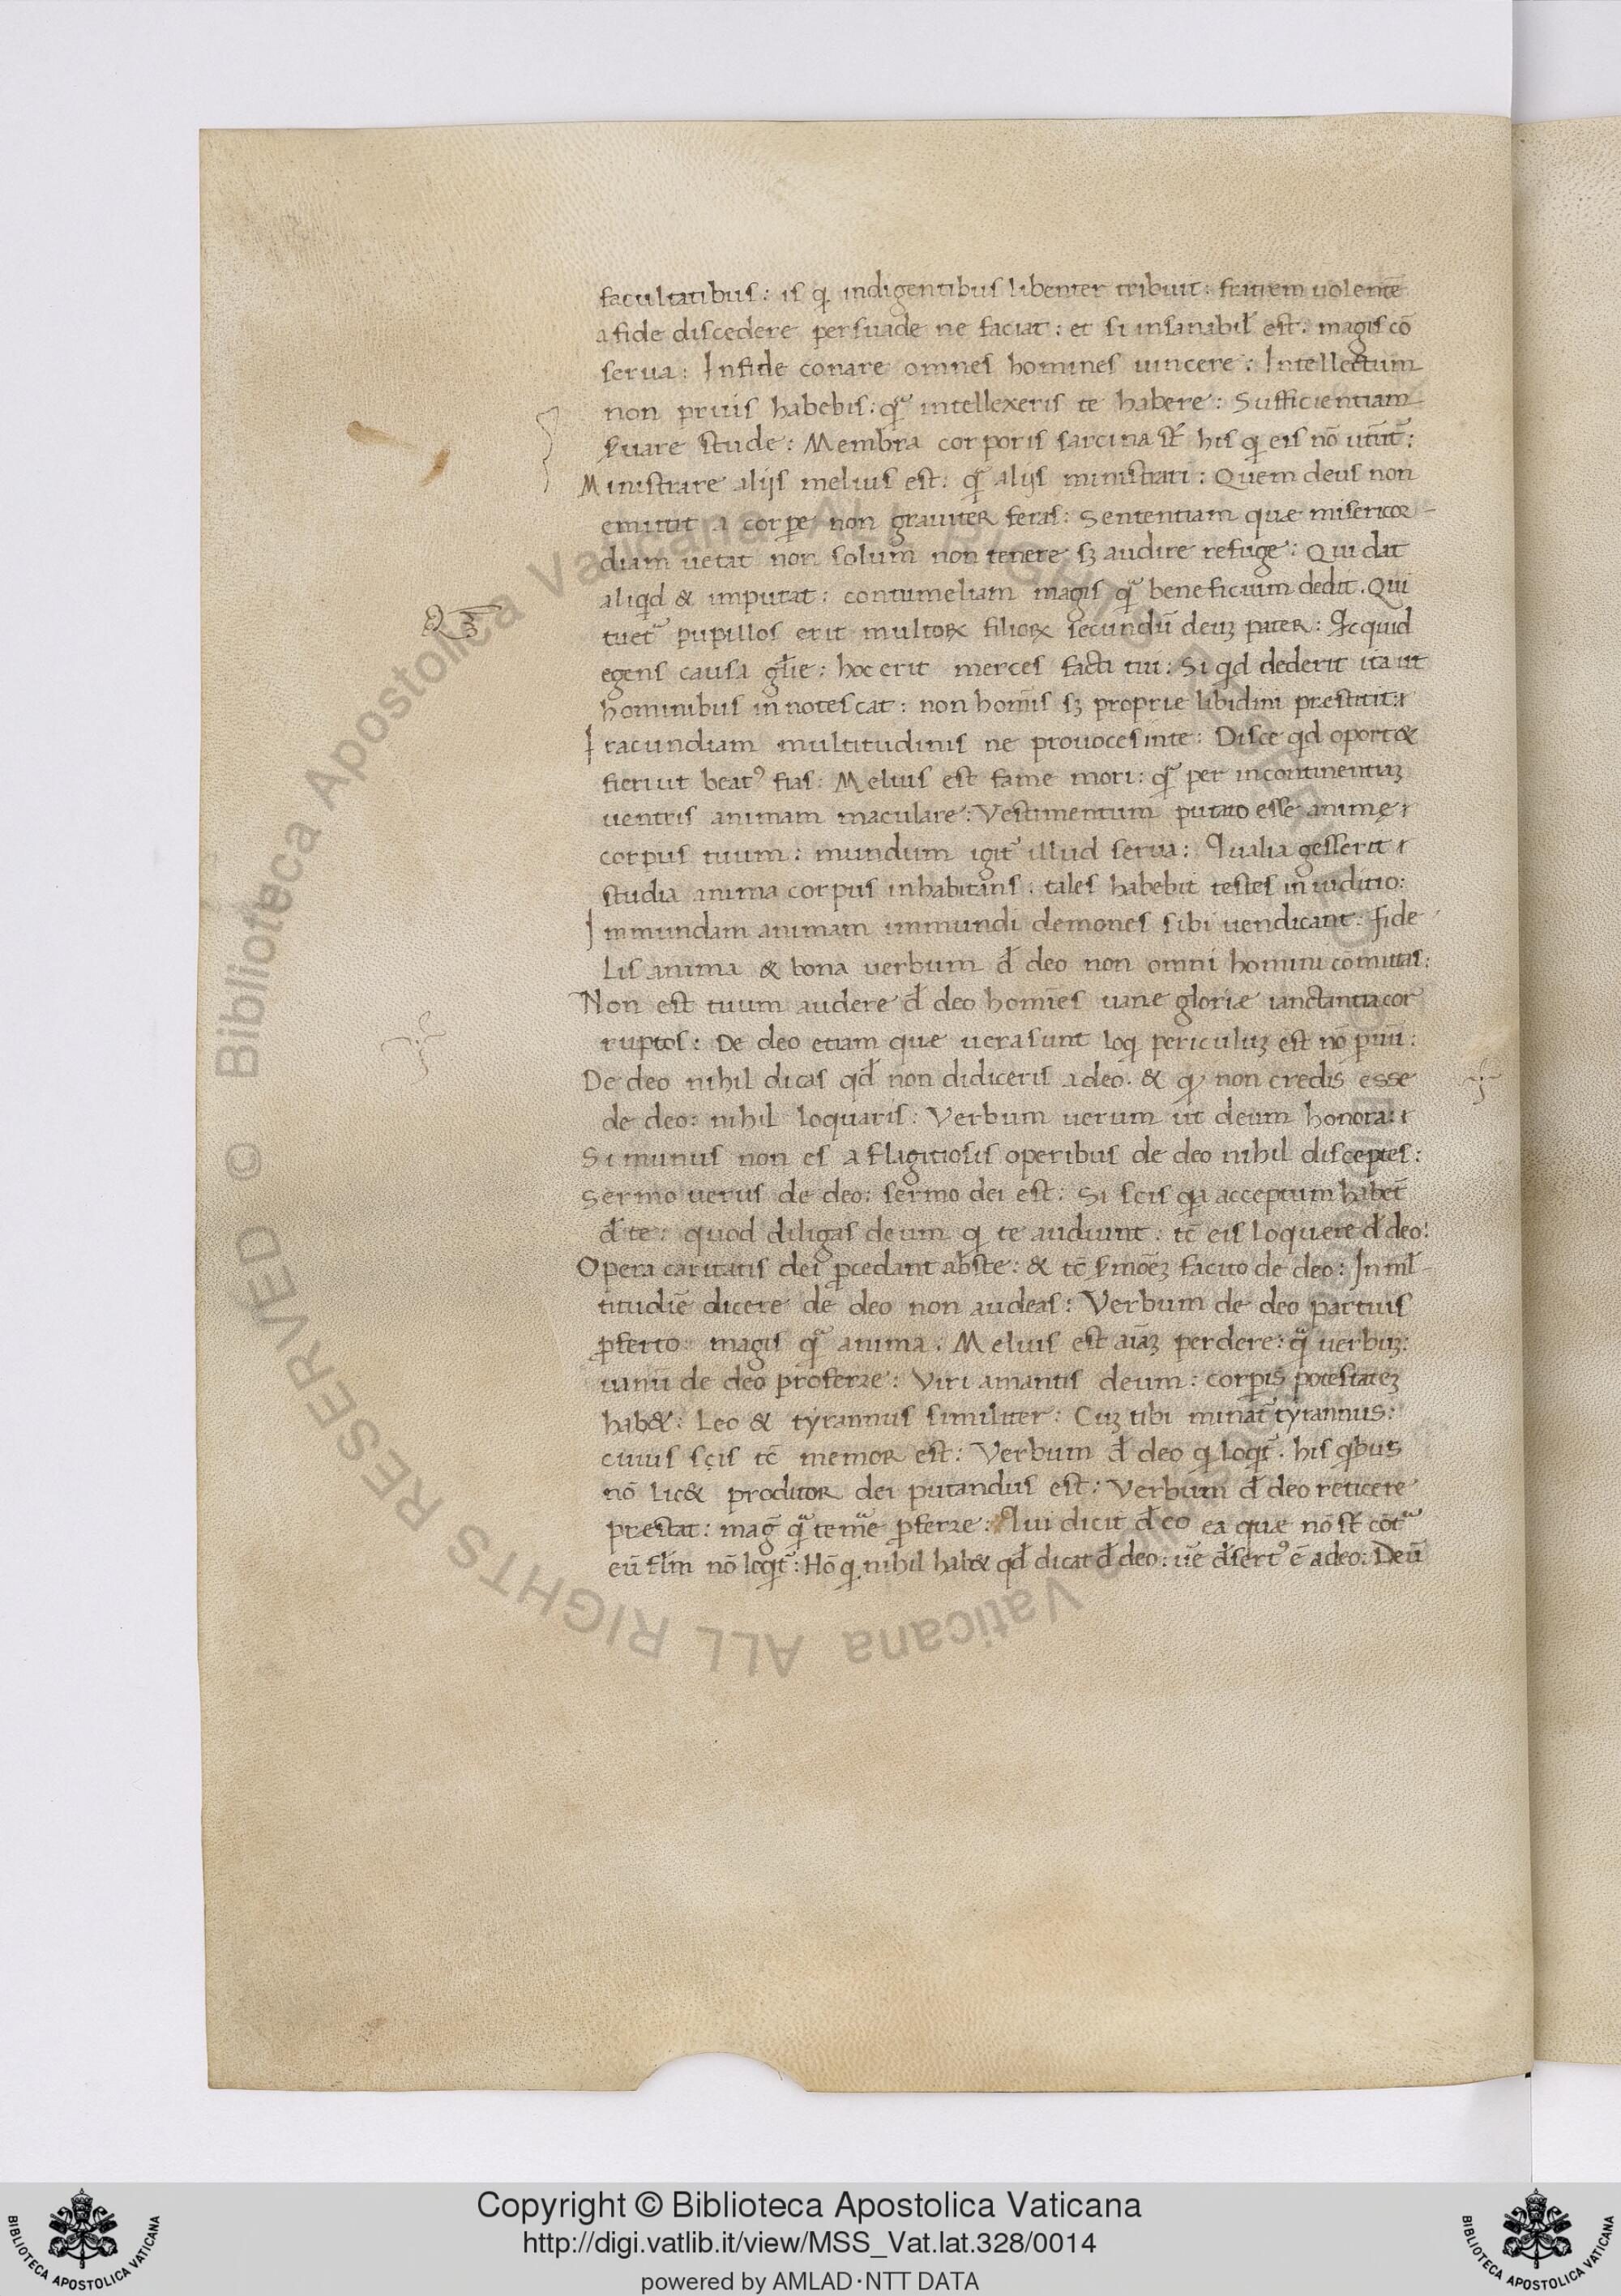 facultatibus: is qͥ indigentibus libenter tribuit: fratrem uolentē
a fide discedere persuade ne faciat: et si insanabil̓ est. magis cō
serua: Infide conare omnes homines uincere: Intellectum
non prius habebis: qᷓ intellexeris te habere: Sufficientiam
ẜuare stude: Membra corporis sarcina st̄ his qͥ eis nō utūt̄:
Ministrare alijs melius est: qᷓ alijs ministrari: Quem deus non
emittit a corꝑe non grauiter feras: Sententiam quæ misericor-
diam uetat non solum non tenere sꝫ audire refuge: Qui dat
aliqͥd & imputat: contumeliam magis qᷓ beneficium dedit. Qui
tuet᷑ pupillos erit multoꝝ filioꝝ secundū deuꝫ pater: Ac quid
egens causa gl̄ie: hoc erit merces facti tui: Si qͥd dederit ita ut
hominibus innotescat: non homīs sꝫ propriæ libidini prestitit:
Iracundiam multitudinis ne prouoces inte: Disce qͥd oport&
fieri ut beatꝰ fias: Melius est fame mori: qᷓ per incontinentiaꝫ
uentris animam maculare: Vestimentum putato esse animę
corpus tuum: mundum igit᷑ illud serua: Qualia gesserit
studia anima corpus inhabitans: tales habebit testes in iuditio:
Inmundam animam inmundi demones sibi uendicant: fide
lis anima & bona uerbum đ deo non omni homini comittas:
Non est tuum audere đ deo homīes uane gloriæ ianctantia cor
ruptos: De deo etiam quæ uera sunt loqͥ periculuꝫ est nō ꝑuū:
De deo nihil dicas qđ non didiceris a deo. & qͥ non credis esse
de deo: nihil loquaris: Verbum uerum ut deum honora:
Si munus non es a flagitiosis operibus de deo nihil disceptes:
Sermo uerus de deo: sermo dei est: Si scis qͥa acceptum habet̄
đ te: quod diligas deum qͥ te audiunt: tc̄ eis loquere đ deo:
Opera caritatis dei p̄cedant abste: & tc̄ ẜmōeꝫ facito de deo: In ml̓-
titudīe dicere de deo non audeas: Verbum de deo partius
ꝓferto: magis qᷓ anima. Melius est aīaꝫ perdere: qᷓ uerbuꝫ:
uanū de deo proferre: Viri amantis deum: corꝑis potestateꝫ
hab&: Leo & tyrannus similiter: Cuꝫ tibi minat᷑ tyrannus:
cuius scis tc̄ memor est: Verbum đ deo qͥ loqͥt᷑. his qͥbus
nō lic& proditor dei putandus est: Verbum đ deo reticere
prestat: maḡ qᷓ tem̄e ꝓferre: Qui dicit đ eo ea quæ nō st̄ cōtᷓ
eū fl̓m nō loqͥt᷑: Hō qͥ nihil hab& qđ dicat đ deo: ūe đsertꝰ ē a deo: Deū
© Biblioteca Apostolica Vaticana ALL RIGHTS RESERVED
Copyright © Biblioteca Apostolica Vaticana
http://digi.vatlib.it/view/MSS_Vat.lat.328/0014
powered by AMLAD·NTT DATA
BIBLIOTECA APOSTOLICA VATICANA
BIBLIOTECA APOSTOLICA VATICANA